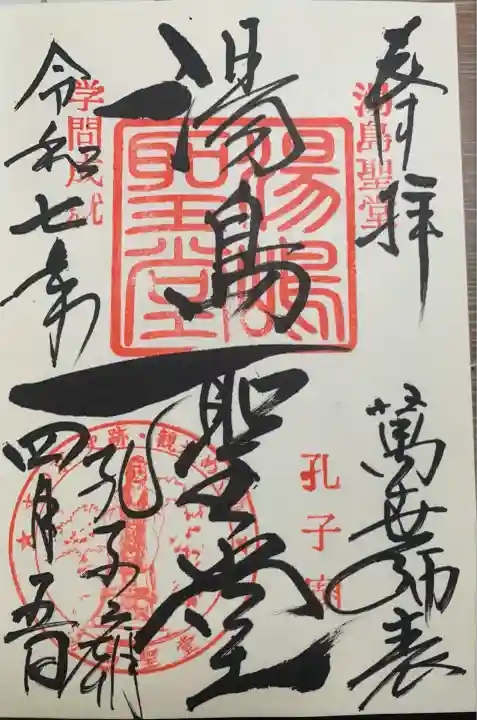 奉拝
湯島聖堂
萬世師表
孔子廟
湯島聖堂
湯島聖堂
孔子廟
学問成就
令和七年
四月五日
聖堂